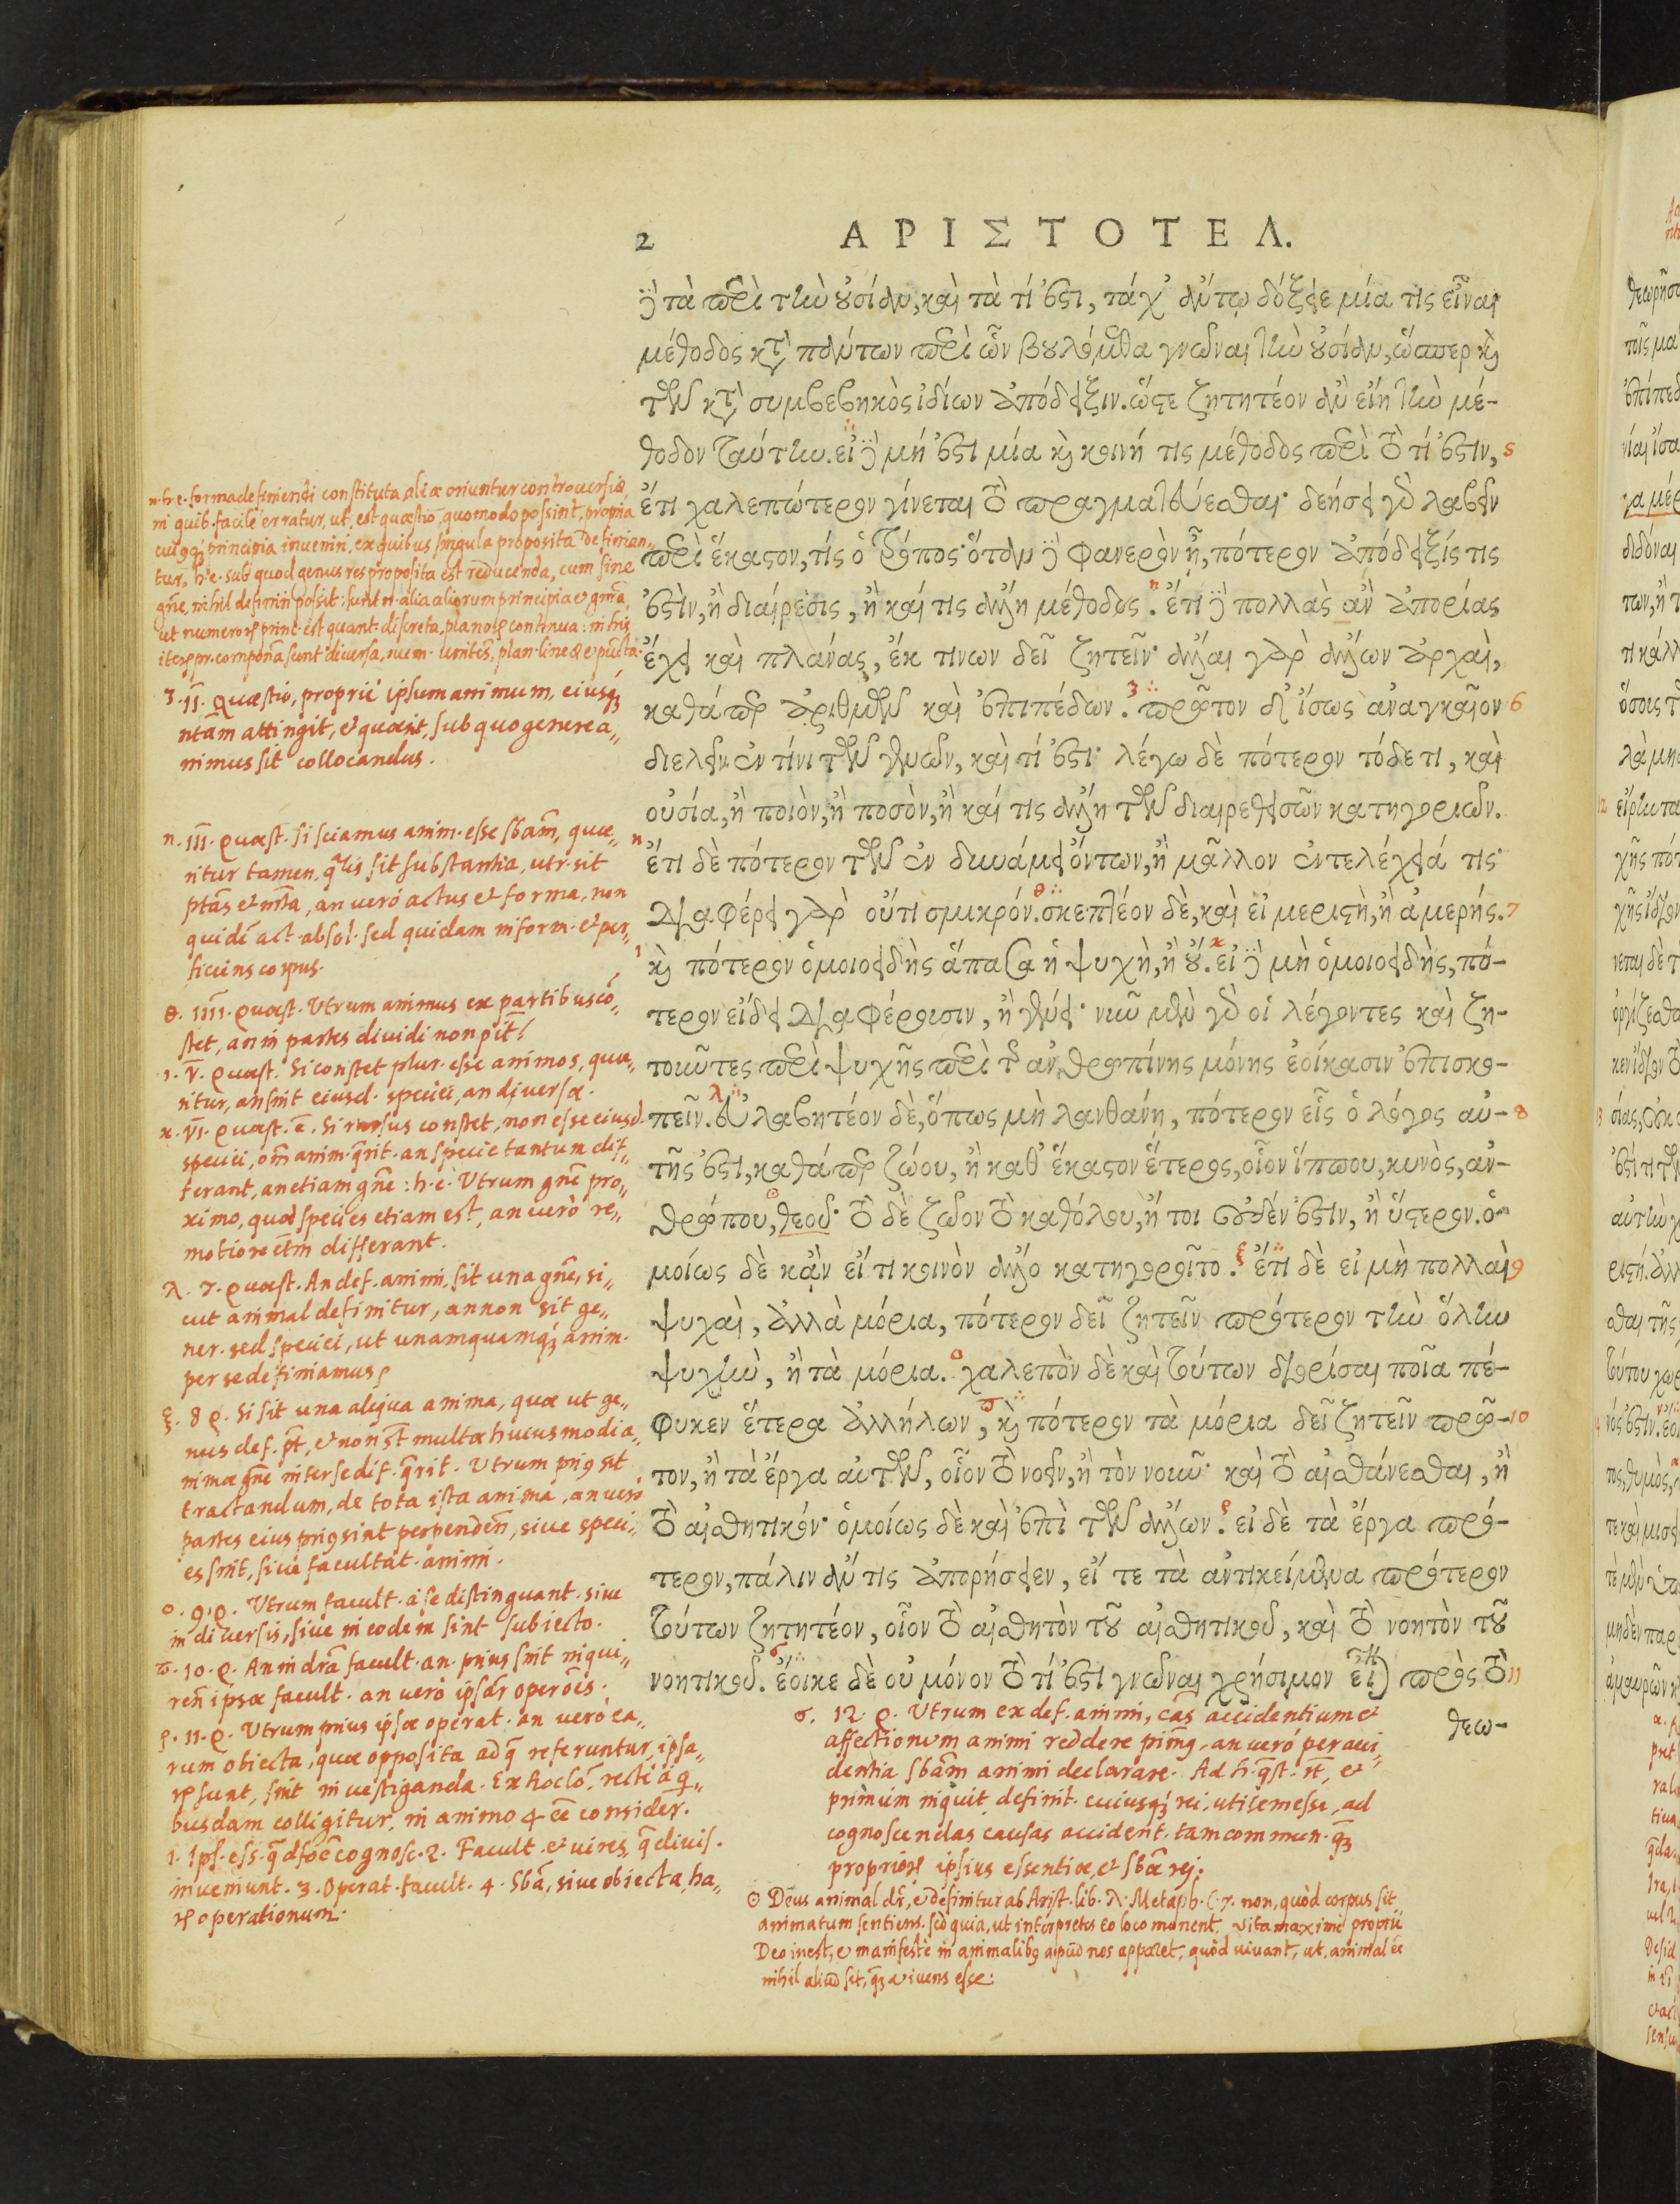 2 ΑΡΙΣΤΟΤΕΛ.
τὰ περὶ τὴν οὐσίαν, καὶ τὰ τί ἐστι, τάχ' ἄν τῳ δόξειε μία τις εἶναι
μέθοδος κατὰ πάντων περὶ ὧν βουλόμεθα γνῶναι τὴν οὐσίαν, ὥσπερ καὶ
τῶν κατὰ συμβεβηκὸς ἰδίων ἀπόδειξιν. ὥστε ζητητέον ἂν εἴη τὴν μέ-
θοδον ταύτην. εἰ δὲ μή ἐστι μία καὶ κοινή τις μέθοδος περὶ τὸ τί ἐστιν, 5
ἔτι χαλεπώτερον γίνεται τὸ πραγματευθῆναι· δεήσει γὰρ λαβεῖν
περὶ ἕκαστον, τίς ὁ τρόπος· ὅταν δὲ φανερὸν ᾖ, πότερον ἀπόδειξίς τις
ἐστὶν, ἢ διαίρεσις, ἢ καί τις ἄλλη μέθοδος. ἔτι δὲ πολλὰς ἂν ἀπορίας
ἔχει καὶ πλάνας, ἐκ τίνων δεῖ ζητεῖν· ἄλλαι γὰρ ἄλλων ἀρχαὶ,
καθάπερ ἀριθμῶν καὶ ἐπιπέδων. πρῶτον δ' ἴσως ἀναγκαῖον 6
διελεῖν ἐν τίνι τῶν γενῶν, καὶ τί ἐστι· λέγω δὲ πότερον τόδε τι, καὶ
οὐσία, ἢ ποιὸν, ἢ ποσὸν, ἢ καί τις ἄλλη τῶν διαιρεθεισῶν κατηγοριῶν.
ἔτι δὲ πότερον τῶν ἐν δυνάμει ὄντων, ἢ μᾶλλον ἐντελέχειά τις·
διαφέρει γὰρ οὔτι σμικρόν. σκεπτέον δὲ, καὶ εἰ μεριστὴ, ἢ ἀμερής. 7
καὶ πότερον ὁμοιοειδὴς ἅπασα ἡ ψυχὴ, ἢ οὔ. εἰ δὲ μὴ ὁμοιοειδὴς, πό-
τερον εἴδει διαφέρουσιν, ἢ γένει· νῦν μὲν γὰρ οἱ λέγοντες καὶ ζη-
τοῦντες περὶ ψυχῆς περὶ τῆς ἀνθρωπίνης μόνης ἐοίκασιν ἐπισκο-
πεῖν. εὐλαβητέον δὲ, ὅπως μὴ λανθάνῃ, πότερον εἷς ὁ λόγος αὐ- 8
τῆς ἐστι, καθάπερ ζώου, ἢ καθ' ἕκαστον ἕτερος, οἷον ἵππου, κυνὸς, ἀν-
θρώπου, θεοῦ· τὸ δὲ ζῶον τὸ καθόλου, ἤ τοι οὐδέν ἐστιν, ἢ ὕστερον. ὁ-
μοίως δὲ κἂν εἴ τι κοινὸν ἄλλο κατηγοροῖτο. ἔτι δὲ εἰ μὴ πολλαὶ 9
ψυχαὶ, ἀλλὰ μόρια, πότερον δεῖ ζητεῖν πρότερον τὴν ὅλην
ψυχὴν, ἢ τὰ μόρια. χαλεπὸν δὲ καὶ τούτων διορίσαι ποῖα πέ-
φυκεν ἕτερα ἀλλήλων, καὶ πότερον τὰ μόρια δεῖ ζητεῖν πρῶ- 10
τον, ἢ τὰ ἔργα αὐτῶν, οἷον τὸ νοεῖν, ἢ τὸν νοῦν· καὶ τὸ αἰσθάνεσθαι, ἢ
τὸ αἰσθητικόν· ὁμοίως δὲ καὶ ἐπὶ τῶν ἄλλων. εἰ δὲ τὰ ἔργα πρό-
τερον, πάλιν ἄν τις ἀπορήσειεν, εἴ τε τὰ ἀντικείμενα πρότερον
τούτων ζητητέον, οἷον τὸ αἰσθητὸν τοῦ αἰσθητικοῦ, καὶ τὸ νοητὸν τοῦ
νοητικοῦ. ἔοικε δὲ οὐ μόνον τὸ τί ἐστι γνῶναι χρήσιμον εἶναι πρὸς τὸ 11
θεω-
h.e. forma definiendi constituta, aliæ oriuntur controversiæ
in quib. facile erratur, ut est quæstio, quomodo possint propria
cuiqȝ principia inveniri, ex quibus singula proposita definian-
tur, h.e. sub quod genus res proposita est reducenda, cum sine
gñe, nihil definiri possit: sunt n. alia aliorum principia & gñra,
3. II. Quæstio, proprie ipsum animum, eiusqȝ
ntam attingit, & quærit, sub quo genere a-
nimus sit collocandus.
n. III. quæst. si sciamus anim. esse sbam, quæ-
ritur tamen, qlis sit substantia, utr. sit
ptas & mta, an vero actus & forma, non
quidē act. absol. sed quidam inform. & per-
ficiens corpus.
θ. IIII. quæst. Utrum animus ex partibus cō-
stet, an in partes dividi non pit?
ι. V. quæst. Si constet plur. esse animos, quæ-
ritur, an sint eiusd. speciei, an diversæ.
κ. VI. quæst. ē. Si rursus constet, non esse eiusd.
speciei, om anim. qrit. an specie tantum dif-
ferant, an etiam gñe: h.e. Utrum gñe pro-
ximo, quod species etiam est, an vero re-
motiore etm differant.
λ. 7. quæst. An def. animi, sit una gñe, si-
cut animal definitur, an non sit ge-
ner. sed speciei, ut unamquamqȝ anim.
per se definiamus?
ξ. 8 q. Si sit una aliqua anima, quæ ut ge-
nus def. pt, & non st multæ huiusmodi a-
nimæ gñe inter se dif. qrit. Utrum priꝯ sit
tractandum, de tota ista anima, an vero
partes eius priꝯ sint perpenden, sive speci-
es sint, sive facultat. animi.
ο. 9. q. Utrum facult. a se distinguant. sive
in diversis, sive in eodem sint subiecto.
π. 10. q. An in dra facult. an prius sint inqui-
ren ipsæ facult. an vero ipsar operōes.
ρ. 11. q. Utrum prius ipsæ operat. an vero ea-
rum obiecta, quæ opposita ad q referuntur, ipsa-
ꝝ sunt, sint investiganda. Ex hoc lo. recte a q-
busdam colligitur, in animo 4 ēē consider.
1. Ips. ess. q dfōe cognosc. 2. Facult. & vires, q divis.
inveniunt. 3. Operat. facult. 4. Sba, sive obiecta, ha-
ꝝ operationum.
σ. 12. q. Utrum ex def. animi, cas accidentium &
affectionum animi reddere pimꝯ, an vero per acci-
dentia sbam animi declarare. Ad h. qst. rt, &
primum inquit, definit. cuiusqȝ rei, utilem esse, ad
cognoscendas causas accident. tam commun. qȝ
proprioꝝ ipsius essentiæ, & sbæ rei.
☉ Deus animal dr, & definitur ab Arist. lib. λ. Metaph. c. 7. non, quòd corpus sit
animatum sentiens. sed quia, ut interpretes eo loco monent, vita maxime propriē
Deo inest, & manifeste in animalibꝯ apud nos apparet, quòd vivant, ut, animal ēē
nihil aliud sit, qȝ vivens esse.